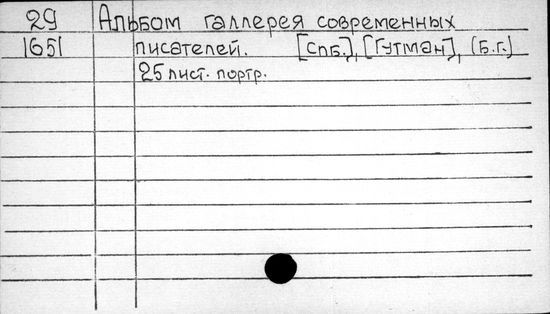 29 Альбом галлерея современных
1651 писателей. [Спб.], [Гутман], (Б.г.)
25 лист. портр.